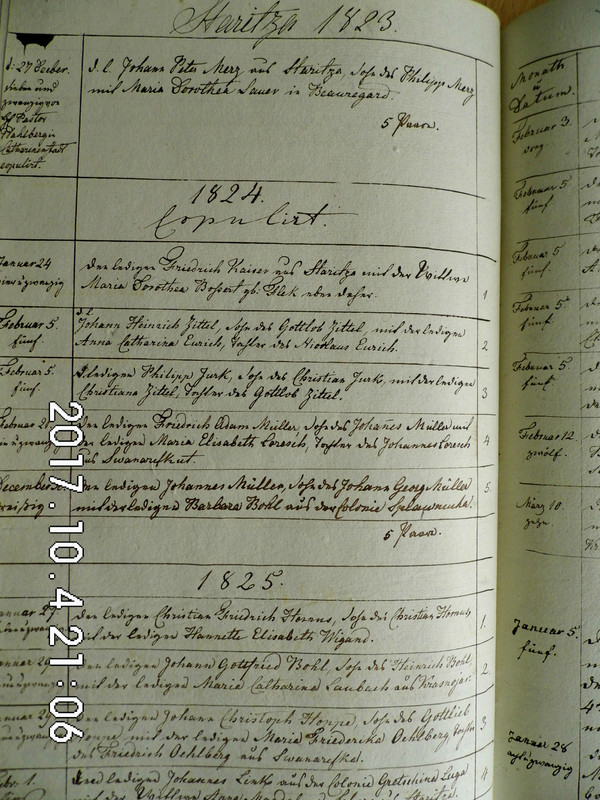 Staritza 1823.
d. 27 Decber.
sieben und
zwanzig von
H Pastor
Wahlberg in
Catharinenstadt
copulirt.
d. l. Johann Peter Merz aus Staritza, Sohn des Philipp Merz
mit Maria Dorothea Lauer in Beauregard.
5 Paare.
1824.
Copulirt.
Januar 24
Der ledige Friedrich Kaiser aus Staritza mit der Wittwe
Maria Dorothea Bossert gb. Flek
1
Februar 5.
fünf.
d. l.
Johann Heinrich Zittel, Sohn des Gottlob Zittel, mit der ledigen
Anna Catharina Eurich, Tochter des Nicolaus Eurich.
2
Februar 5.
fünf.
d. ledige Philipp Jurk, Sohn des Christian Jurk, mit der ledigen
Christiana Zittel, Tochter des Gottlob Zittel.
3
Februar
Der ledige Friedrich Adam Müller, Sohn des Johanes Müller mit
der ledigen Maria Elisabeth Loresch, Tochter des Johannes Loresch
aus Swanarefkut.
4
December
Der ledige Johannes Müller, Sohn des Johann Georg Müller
mit der ledigen Barbara Bohl aus der Colonie
5.
5 Paare.
1825.
Januar 27
Der ledige Christian Friedrich Hornus, Sohn des Christian Hornus
mit der ledigen Hannette Elisabeth Wigand.
1.
Der ledige Johann Gottfried Bohl, Sohn des Heinrich Bohl,
mit der ledigen Maria Catharina Laubach aus Krasnojar.
2
Der ledige Johann Christoph Hoppe, Sohn des Gottlieb
Hoppe, mit der ledigen Maria Friederika Oehlberg Tochter
des Friedrich Oehlberg aus Swanarefka.
3
Der ledige Johannes Link aus der Colonie Gretschina Luga
mit der Wittwe Anna
4
Monath
u
Datum.
Februar 3.
drey.
Februar 5.
fünf.
Februar 5
fünf.
Februar 5.
fünf.
Februar 5.
fünf.
Februar 12.
zwölf.
März 10.
zehn.
Januar 5.
fünf.
Januar 28
achtzwanzig
2017.10.4 21:06